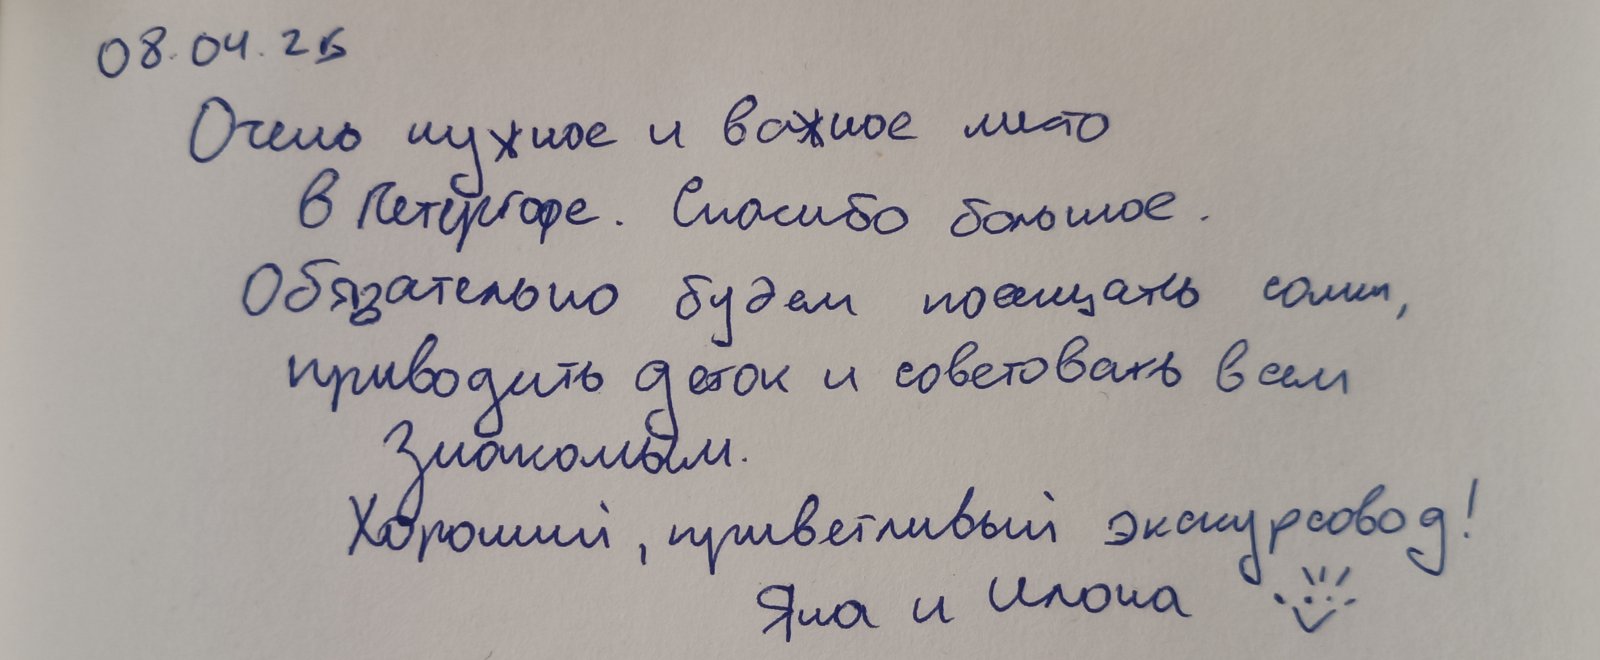 08.04.25
Очень нужное и важное место
в Петергофе. Спасибо большое.
Обязательно будем посещать сами,
приводить деток и советовать всем
знакомым.
Хороший, приветливый экскурсовод!
Яна и Илона